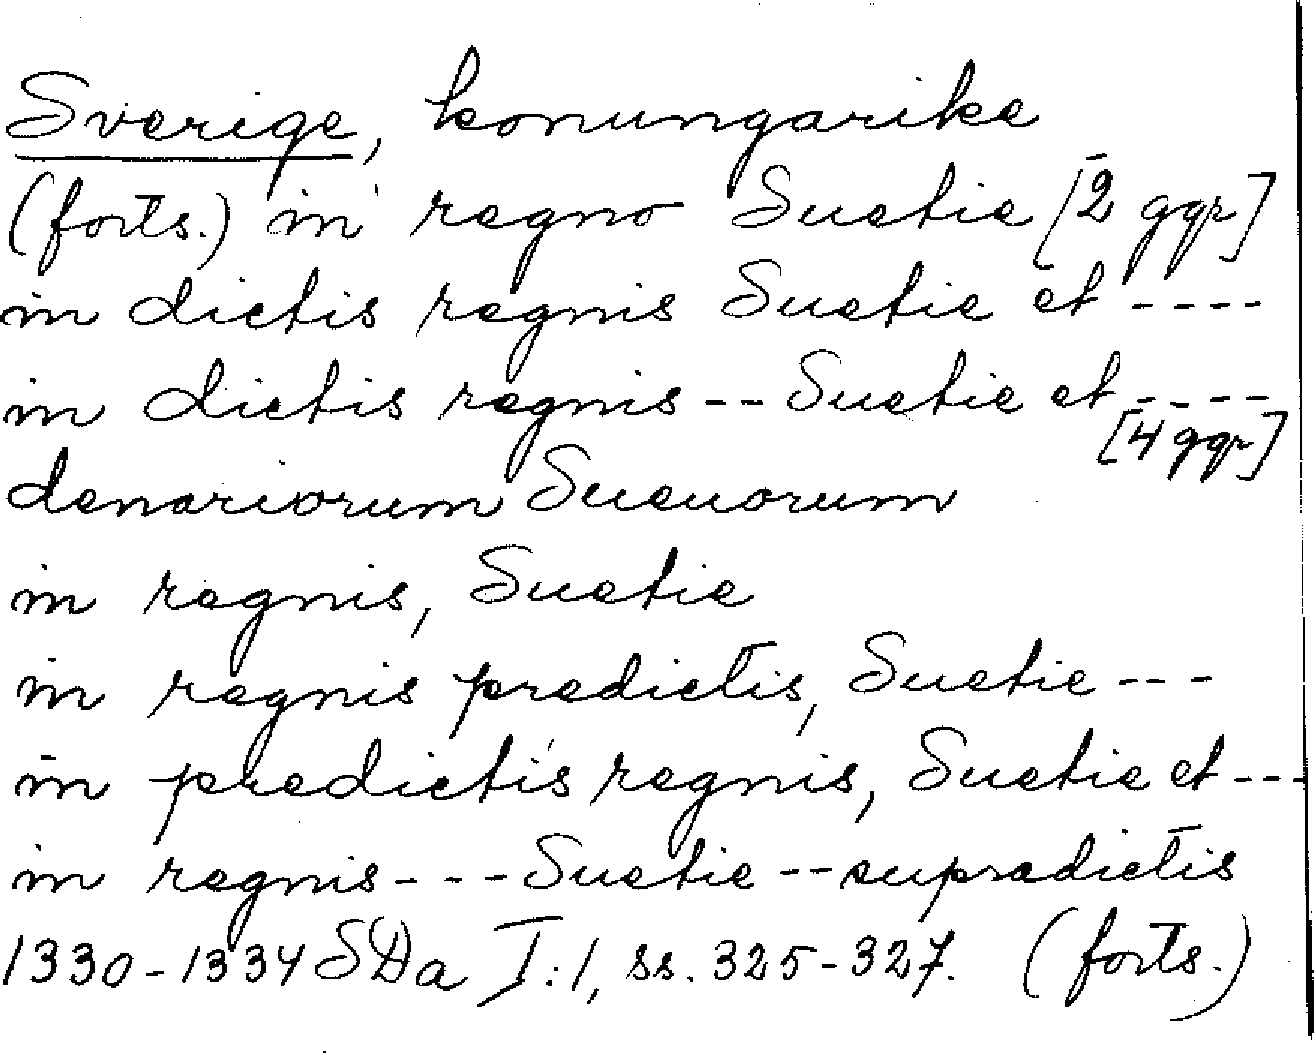 Sverige, konungarike
(forts.) in regno Suetie [2 ggr]
in dictis regnis Suetie et ----
in dictis regnis -- Suetie et ----
[4 ggr]
denariorum Sueuorum
in regnis, Suetie
in regnis predictis, Suetie ---
in predictis regnis, Suetie et ---
in regnis --- Suetie -- supradictis
1330-1334 SDa I:1, ss. 325-327. (forts.)